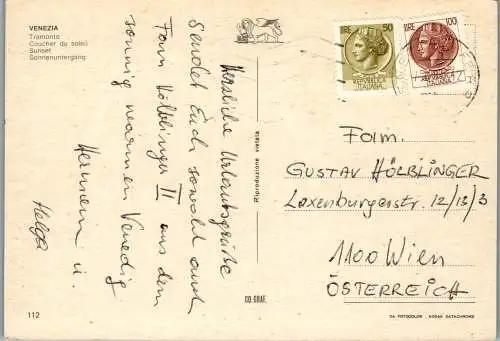 VENEZIA
Tramonto
Coucher du soleil
Sunset
Sonnenuntergang
Herzliche Urlaubsgrüße
Sendet Euch sowohl auch
Fam Hölblinger II aus dem
sonnig warmen Venedig
Hermann u.
Helga
112
Riproduzione vietata
CO-GRAF.
LIRE 50
REPUBBLICA
ITALIANA
LIRE 100
REPUBBLICA
ITALIANA
Fam.
GUSTAV HÖLBLINGER
Laxenburgerstr. 12/13/3
1100 Wien
ÖSTERREICH
DA FOTOCOLOR - KODAK EKTACHROME